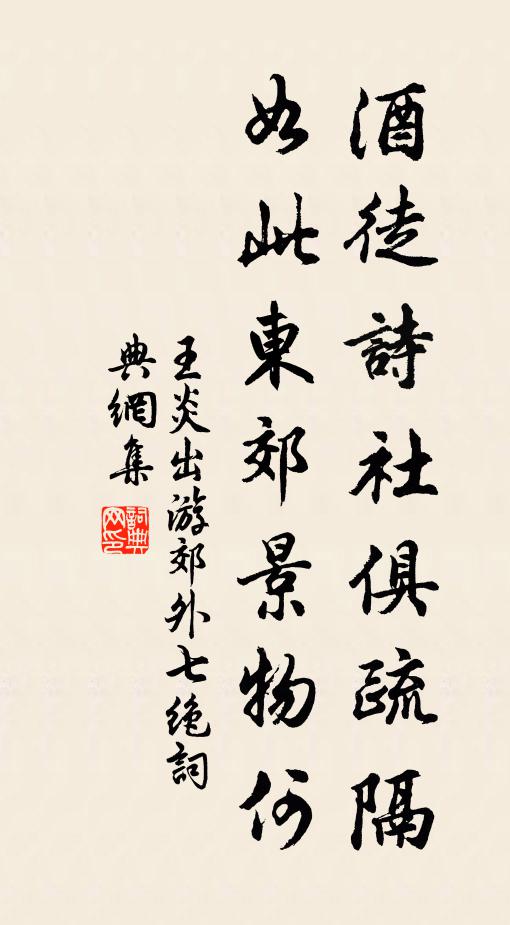 酒徒詩社俱疏隔
如此東郊景物何
王炎出游郊外七绝詞
典網集
詞典
网印